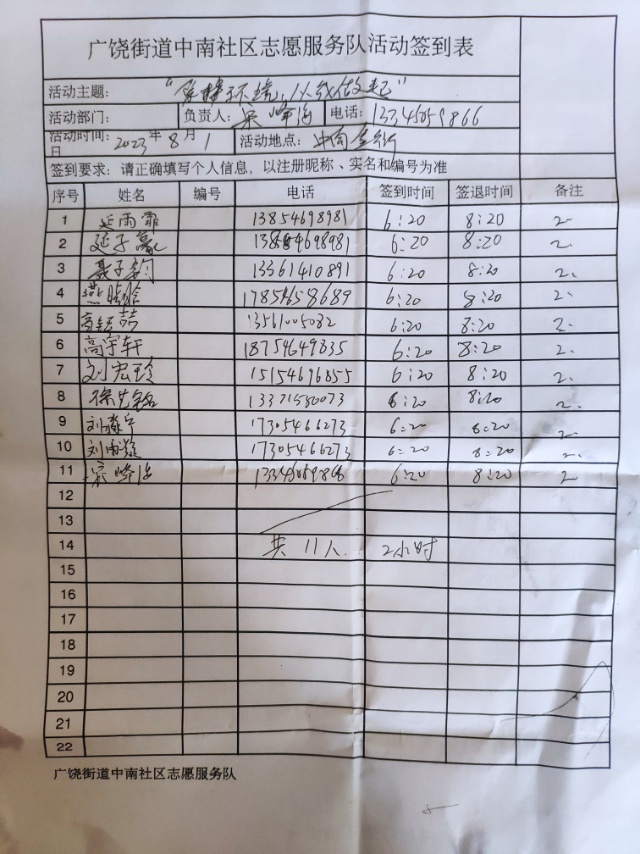 广饶街道中南社区志愿服务队活动签到表
活动主题: 环境,从我做起"
活动部门: 负责人: 峰 电话: 13345059866
活动时间: 2023 年 8 月 1 日 活动地点: 中南
签到要求: 请正确填写个人信息, 以注册昵称、实名和编号为准
序号 姓名 编号 电话 签到时间 签退时间 备注
1 延雨霏 13854698981 6:20 8:20 2
2 延子 13854698981 6:20 8:20 2
3 聂子 13361410891 6:20 8:20 2
4 燕 17854658689 6:20 8:20 2
5 高钰喆 13561005082 6:20 8:20 2
6 高宇轩 18754649835 6:20 8:20 2
7 刘宏玲 15154696855 6:20 8:20 2
8 徐 铭 6:20 8:20 2
9 刘 宇 17305466273 6:20 8:20 2
10 刘雨 17305466273 6:20 8:20 2
11 峰 6:20 8:20 2
12
13
14 共11人 2小时
15
16
17
18
19
20
21
22
广饶街道中南社区志愿服务队